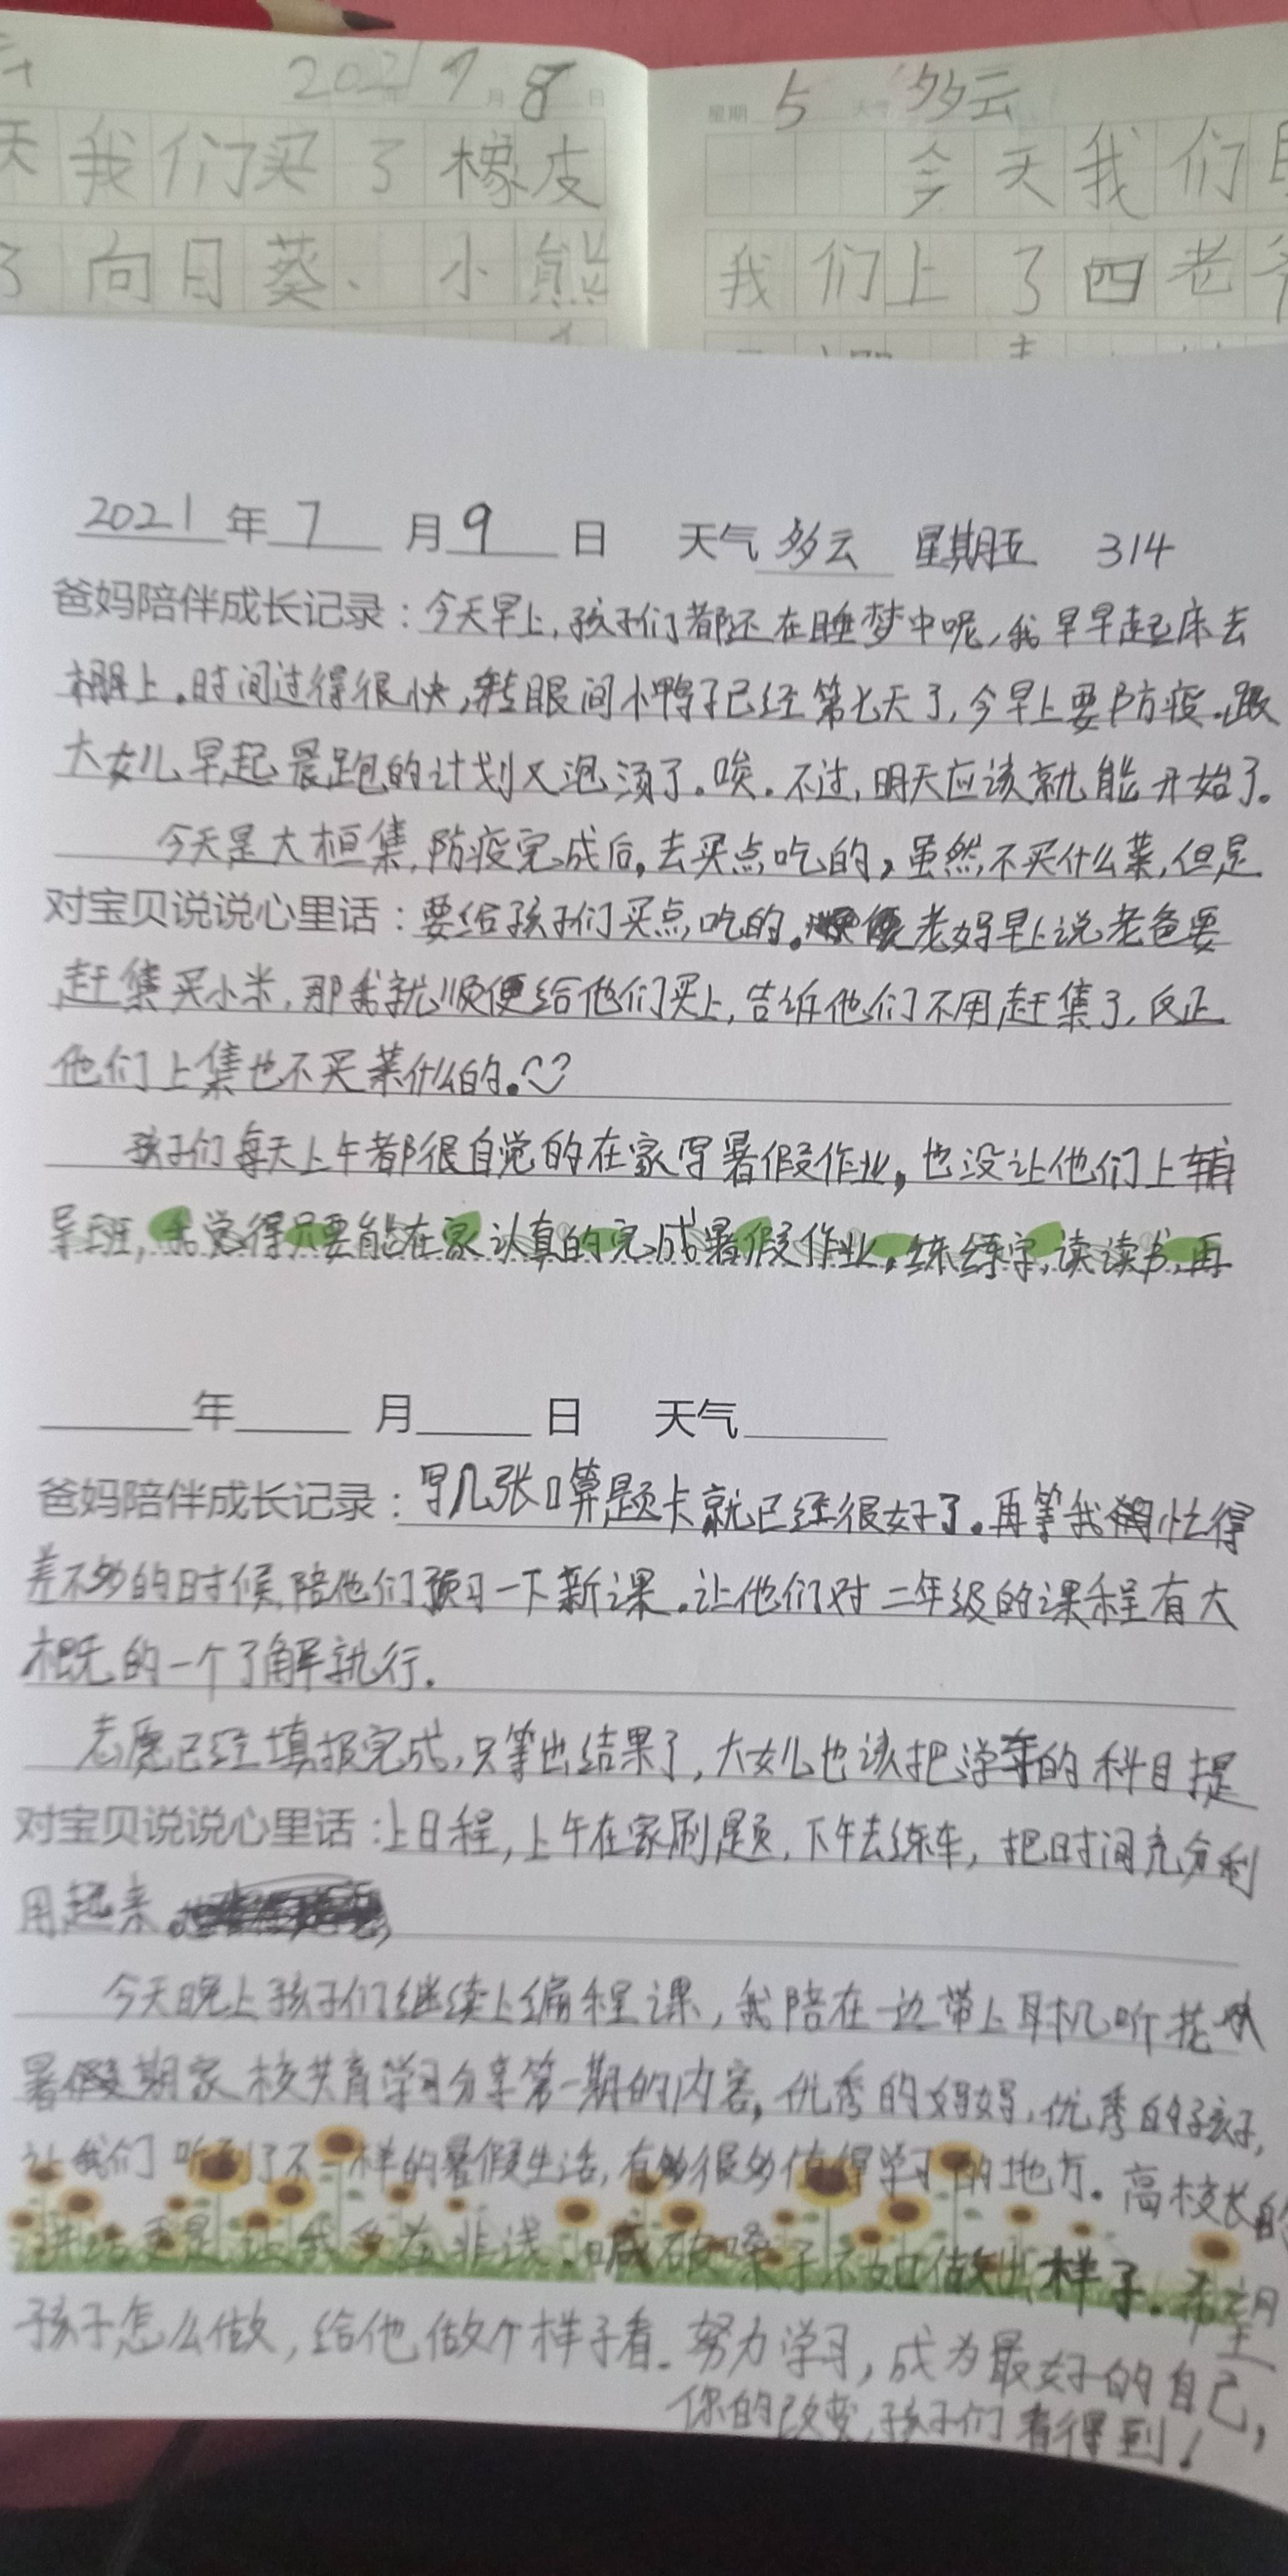 2021 7月8日
天我们买了橡皮
了向日葵、小熊
星期5 天气 多云
今天我们
我们上了四老爷
2021年7月9日 天气多云 星期五 314
爸妈陪伴成长记录：今天早上，孩子们都还在睡梦中呢，我早早起床去
棚上。时间过得很快，转眼间小鸭子已经第七天了，今早上要防疫。跟
大女儿早起晨跑的计划又泡汤了。唉。不过，明天应该就能开始了。
今天是大桓集，防疫完成后，去买点吃的，虽然不买什么菜，但是
对宝贝说说心里话：要给孩子们买点吃的。老妈早上说老爸要
赶集买小米，那我就顺便给他们买上，告诉他们不用赶集了，反正
他们上集也不买菜什么的。
孩子们每天上午都很自觉的在家写暑假作业，也没让他们上辅
导班，我觉得只要能在家认真的完成暑假作业，练练字，读读书，再
年 月 日 天气
爸妈陪伴成长记录：写几张口算题卡就已经很好了。再等我忙得
差不多的时候，陪他们预习一下新课。让他们对二年级的课程有大
概的一个了解就行。
志愿已经填报完成，只等出结果了，大女儿也该把学车的科目提
对宝贝说说心里话：上日程，上午在家刷题，下午去练车，把时间充分利
用起来。
今天晚上孩子们继续上编程课，我陪在一边带上耳机听
暑假期家校共育学习分享第一期的内容，优秀的妈妈，优秀的孩子，
让我们听到了不一样的暑假生活，有很多值得学习的地方。高校长的
讲话更是让我受益非浅。喊破嗓子不如做出样子。希望
孩子怎么做，给他做个样子看。努力学习，成为最好的自己，
你的改变，孩子们看得到！